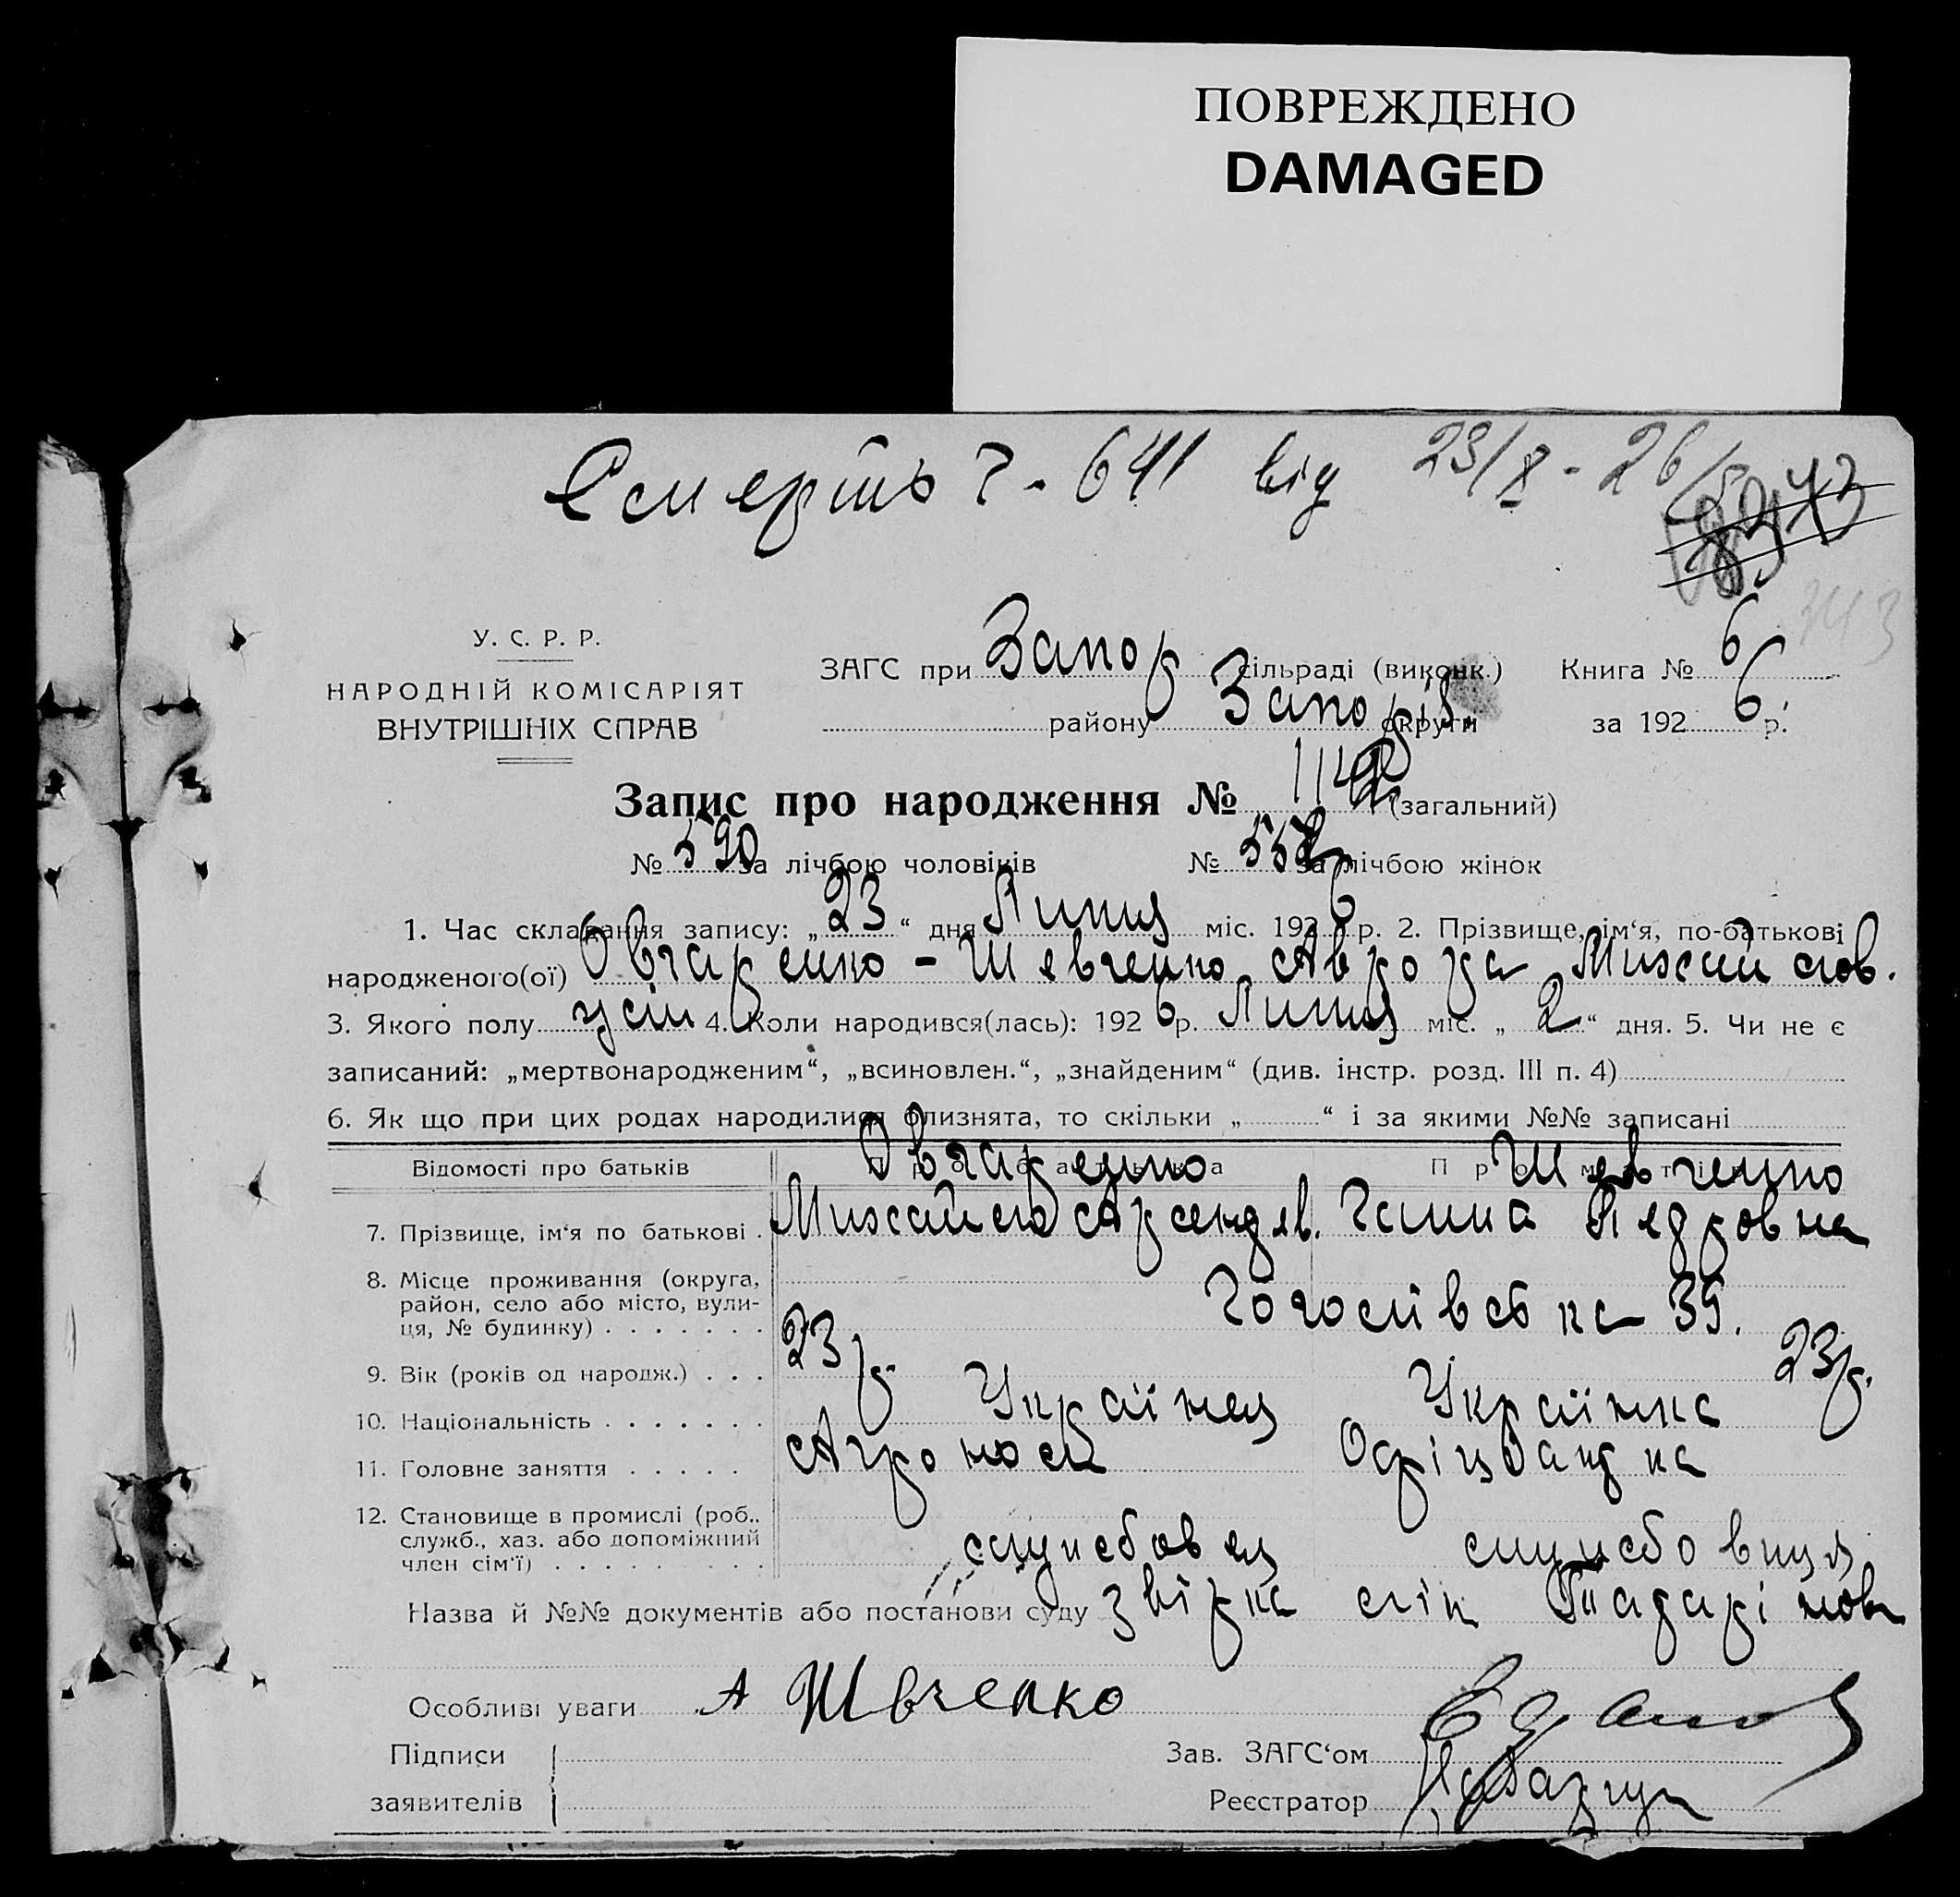 ПОВРЕЖДЕНО
DAMAGED
Смерть Ч - 641 від 23/8 - 26/
343
У. С. Р. Р.
НАРОДНІЙ КОМІСАРІЯТ
ВНУТРІШНІХ СПРАВ
ЗАГС при Запор сільраді (виконк.) Книга № 6
району Запоріз. округи за 192 6 р.
Запис про народження № (загальний)
№ 590 за лічбою чоловіків № 552 за лічбою жінок
1. Час складання запису: „ 23 “ дня Липця міс. 192 6 р. 2. Прізвище, ім‘я, по-батькові
народженого(ої) Овчаренко - Шевченко Аврора Михайлов.
3. Якого полу жін 4. Коли народився(лась): 192 6 р. Липця міс. „ 2 “ дня. 5. Чи не є
записаний: „мертвонародженим“, „всиновлен.“, „знайденим“ (див. інстр. розд. III п. 4)
6. Як що при цих родах народилися близнята, то скільки „ “ і за якими №№ записані
Відомості про батьків Про батька Про матір
Овчаренко Шевченко
7. Прізвище, ім‘я по батькові . Михайло Арсентів. Ганна Педровна
8. Місце проживання (округа,
район, село або місто, вули-
ця, № будинку) . . . . . . . Гоголівська 39.
9. Вік (років од народж.) . . . 23 р. 23 р.
10. Національність . . . . . . . Українец Українка
11. Головне заняття . . . . . Агроном Офіціандка
12. Становище в промислі (роб.,
служб., хаз. або допоміжний
член сім‘ї) . . . . . . . . . службовец службовиця
Назва й №№ документів або постанови суду звірка лік
Особливі уваги А Швченко
Підписи
заявителів
Зав. ЗАГС‘ом
Реєстратор